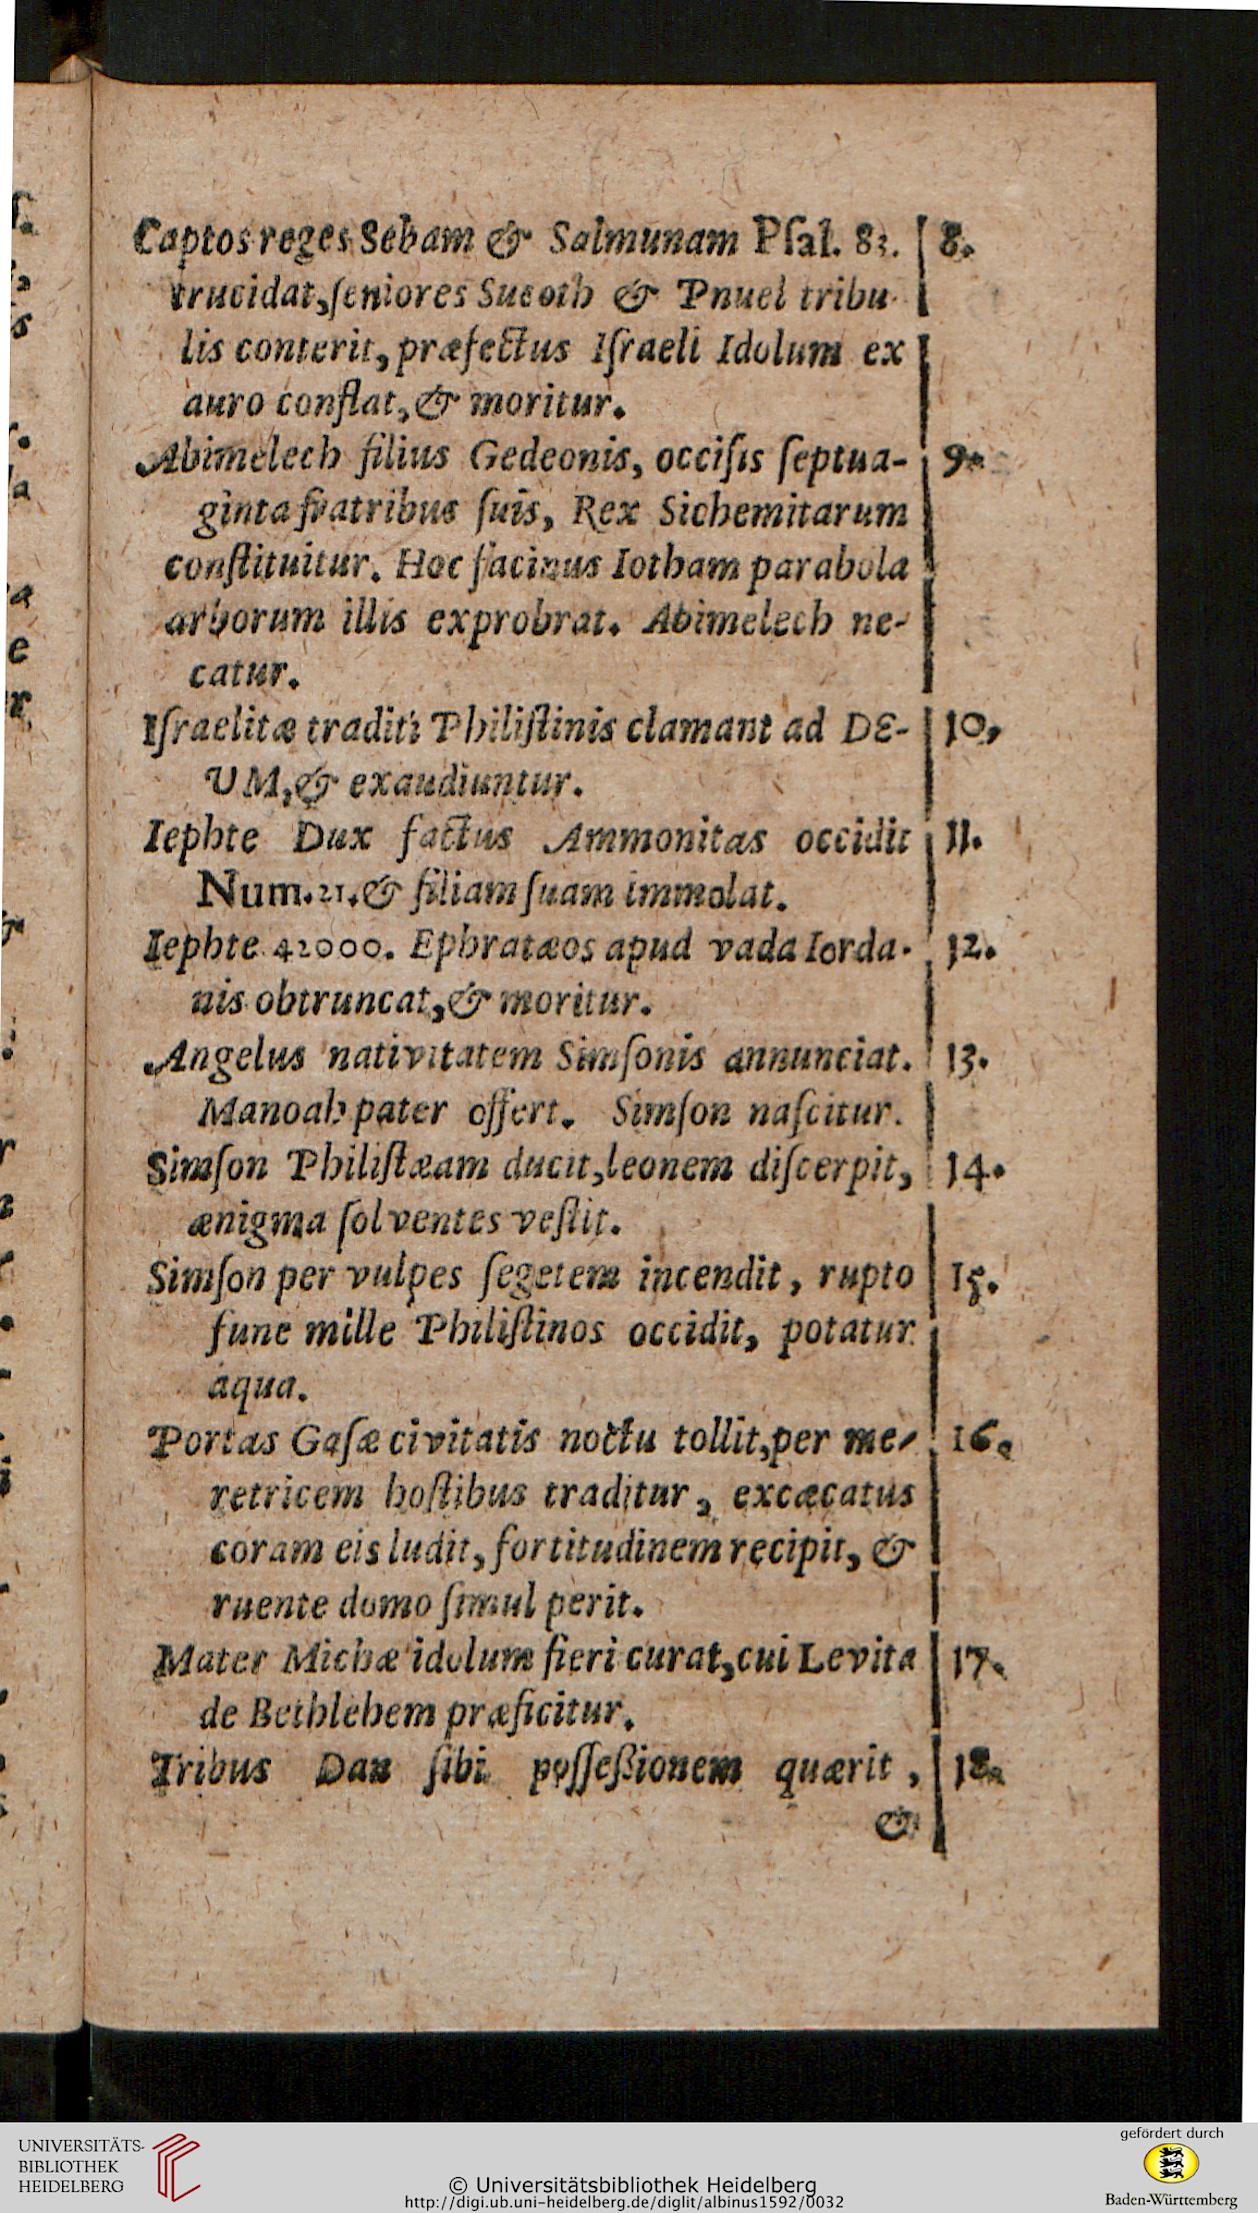 Captos reges Sebam & Salmunam Pſal. 83. 8.
trucidat, ſeniores Sucoth & Pnuel tribu-
lis conterit, præfectus Iſraeli Idolum ex
auro conflat, & moritur.
Abimelech filius Gedeonis, occiſis ſeptua- 9.
ginta fratribus ſuis, Rex Sichemitarum
conſtituitur. Hoc facinus Iotham parabola
arborum illis exprobrat. Abimelech ne-
catur.
Iſraelitæ traditi Philiſtinis clamant ad DE- 10,
UM, & exaudiuntur.
Iephte Dux factus Ammonitas occidit 11.
Num. 21. & filiam ſuam immolat.
Iephte 42000. Ephratæos apud vada Iorda- 12.
nis obtruncat, & moritur.
Angelus nativitatem Simſonis annunciat. 13.
Manoah pater offert. Simſon naſcitur.
Simſon Philiſtæam ducit, leonem diſcerpit, 14.
ænigma ſolventes veſtit.
Simſon per vulpes ſegetem incendit, rupto 15.
fune mille Philiſtinos occidit, potatur
aqua.
Portas Gaſæ civitatis noctu tollit, per me- 16.
retricem hoſtibus traditur, excæcatus
coram eis ludit, fortitudinem recipit, &
ruente domo ſimul perit.
Mater Michæ idolum fieri curat, cui Levita 17.
de Bethlehem præficitur.
Tribus Dan ſibi poſſeßionem quærit, 18.
&
UNIVERSITÄTS-
BIBLIOTHEK
HEIDELBERG
© Universitätsbibliothek Heidelberg
http://digi.ub.uni-heidelberg.de/diglit/albinus1592/0032
gefördert durch
Baden-Württemberg